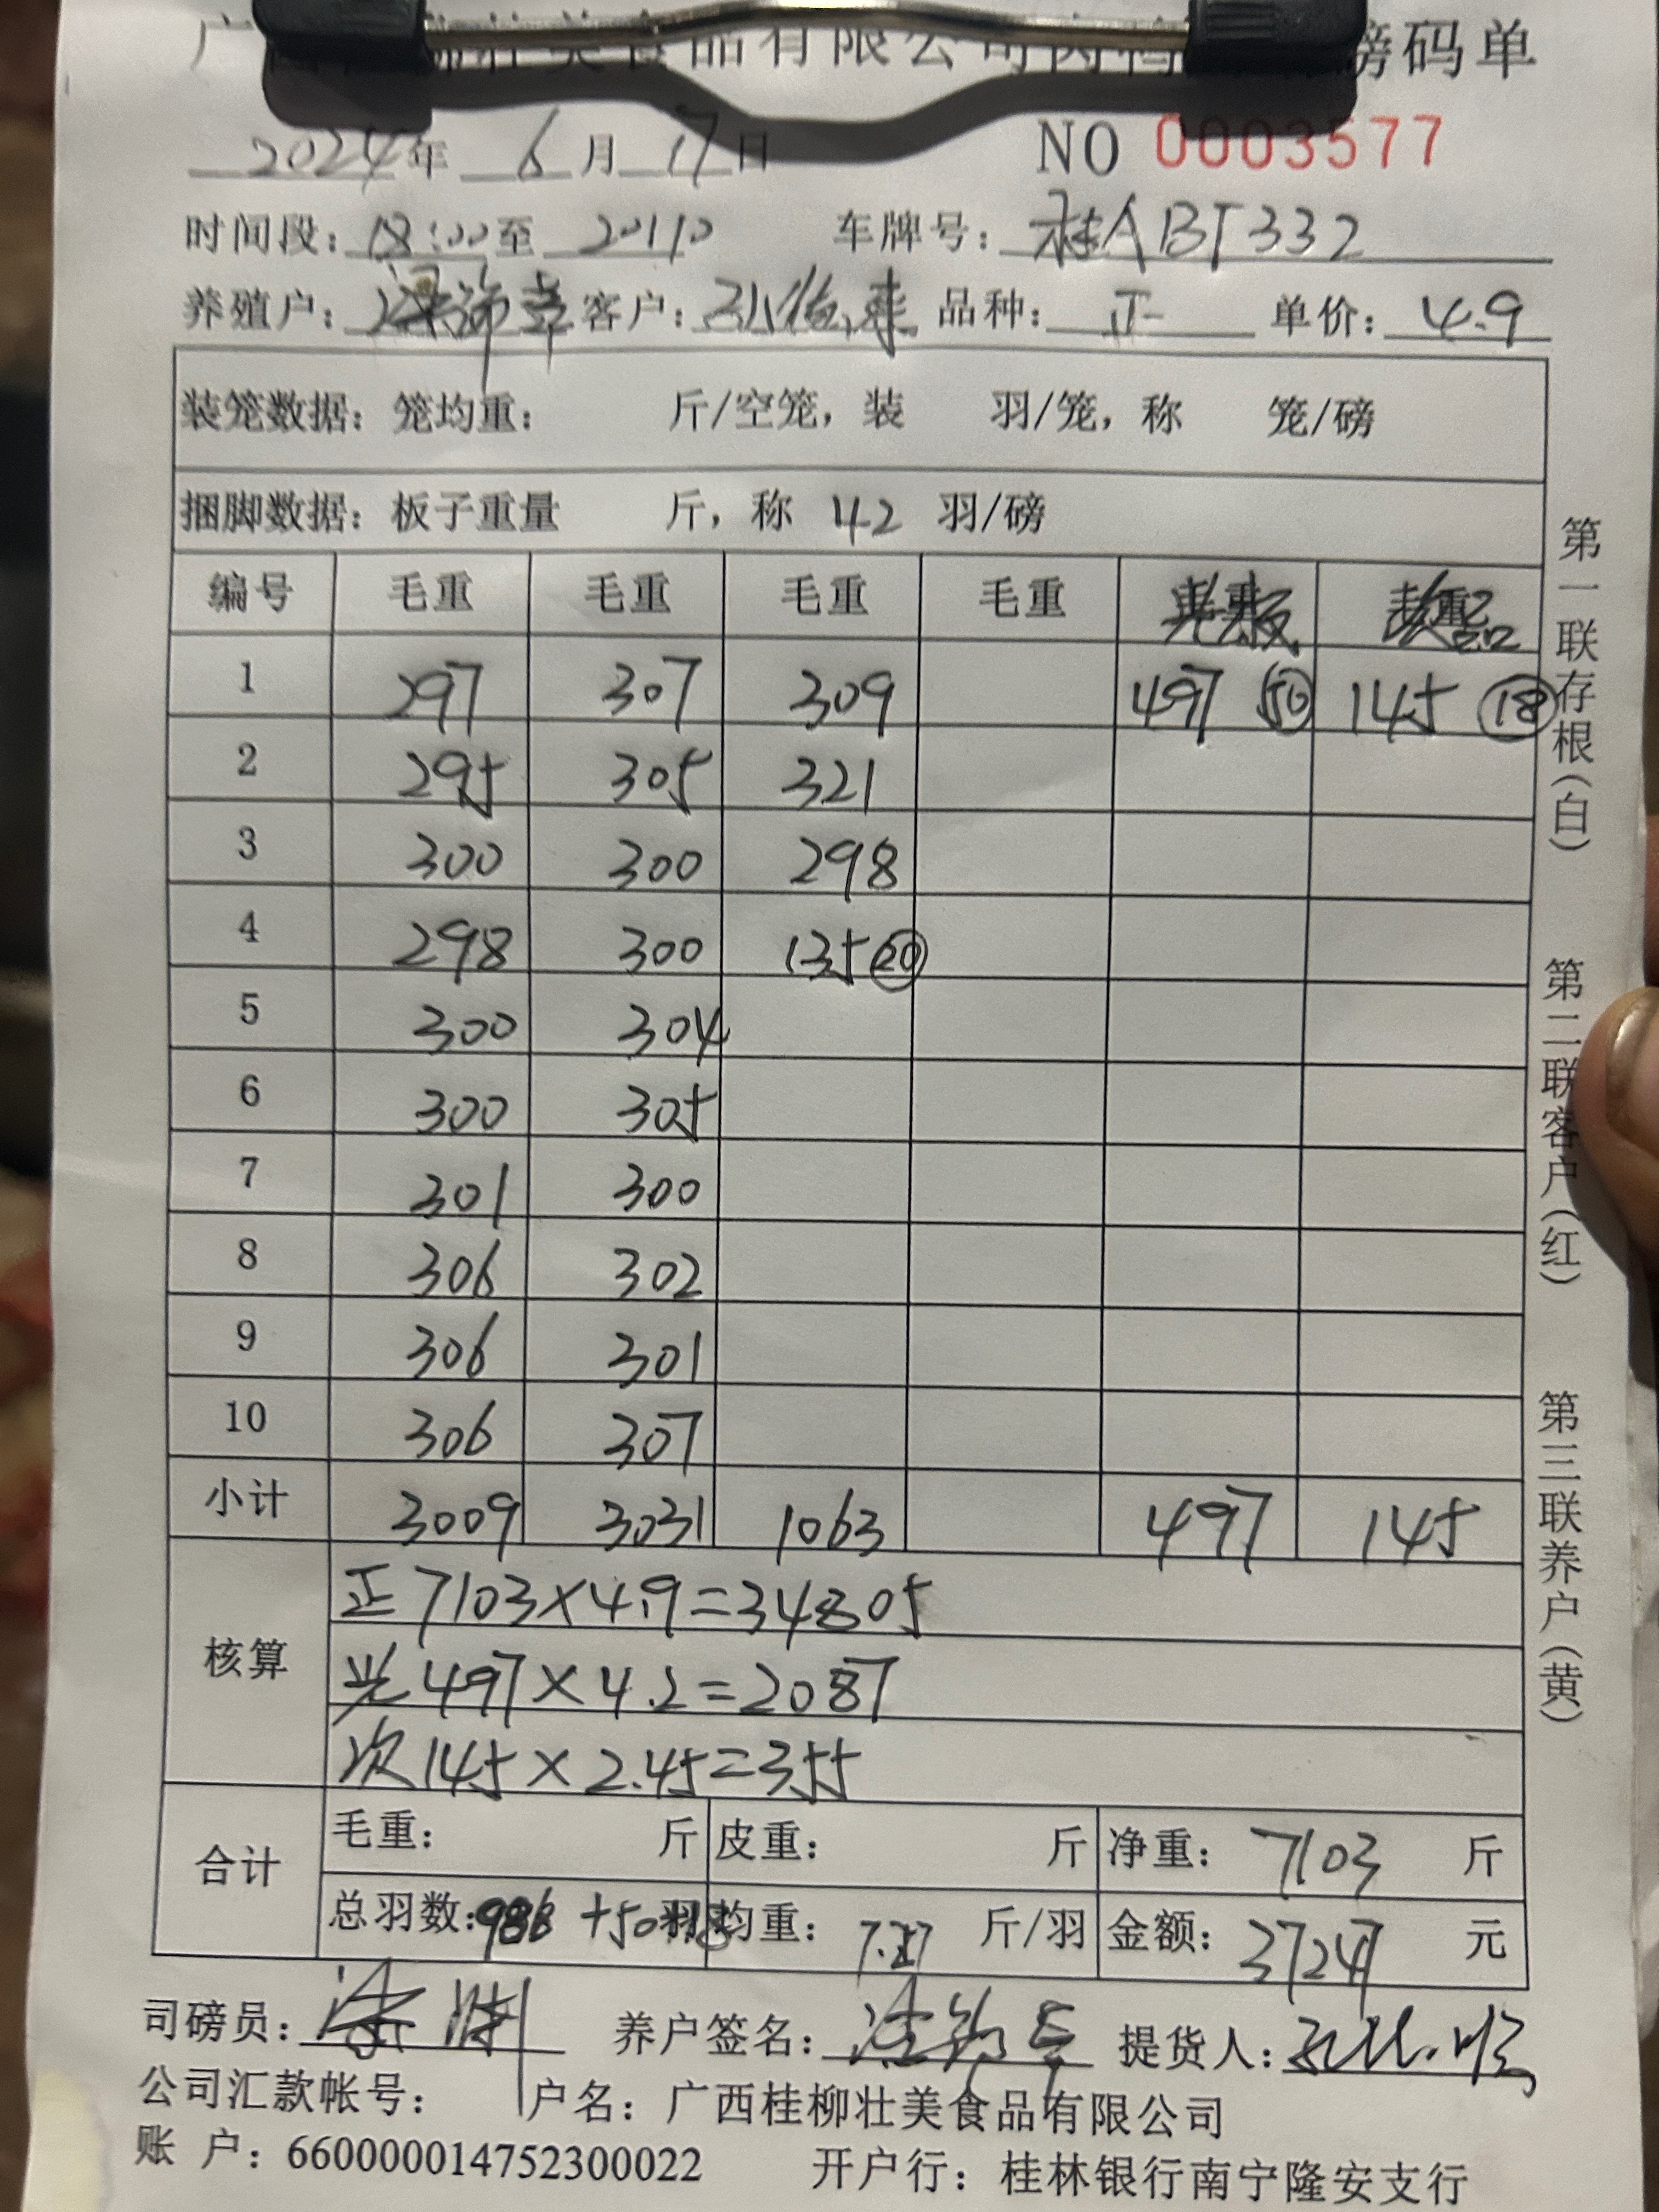 广 壮美食品有限公司肉鸭 磅码单
2024年 6月 17日 NO 0003577
时间段: 18:00 至 20:10 车牌号: 桂ABT332
养殖户: 客户: 品种: 正 单价: 4.9
装笼数据: 笼均重: 斤/空笼, 装 羽/笼, 称 笼/磅
捆脚数据: 板子重量 斤, 称 42 羽/磅
编号 毛重 毛重 毛重 毛重
1 297 307 309 497 50 145 18
2 295 305 321
3 300 300 298
4 298 300 135 20
5 300 304
6 300 305
7 301 300
8 306 302
9 306 301
10 306 307
小计 3009 3031 1063 497 145
核算
正 7103×4.9=34805
光 497×4.2=2087
次 145×2.45=355
合计 毛重: 斤 皮重: 斤 净重: 7103 斤
总羽数: +50+18 羽 均重: 斤/羽 金额: 37247 元
司磅员: 养户签名: 提货人:
公司汇款帐号: 户名: 广西桂柳壮美食品有限公司
账 户: 660000014752300022 开户行: 桂林银行南宁隆安支行
第一联存根(白) 第二联客户(红) 第三联养户(黄)